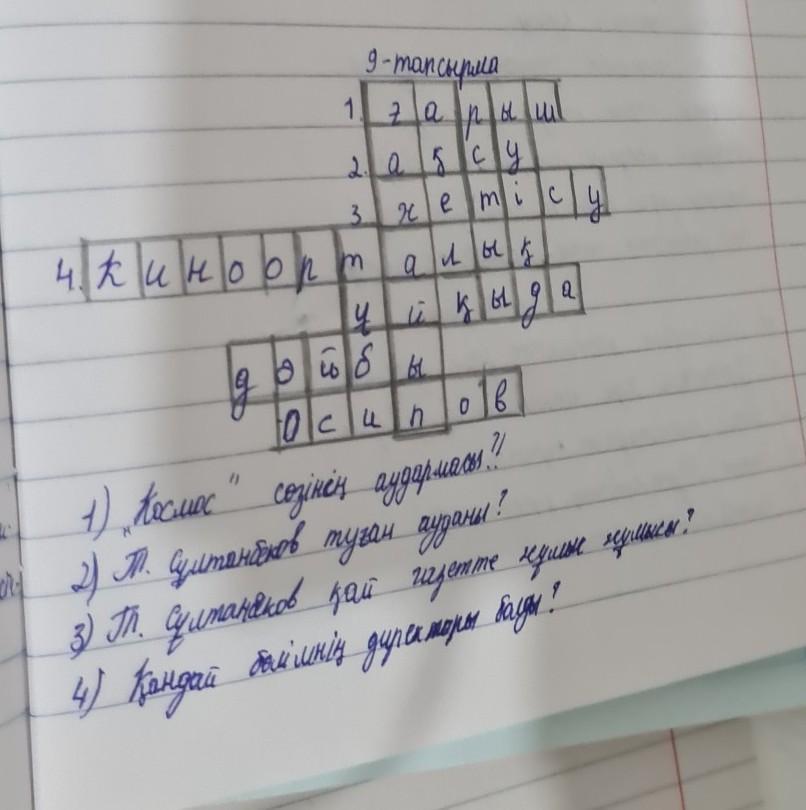 9-тапсырма
1. ғарыш
2. ақсу
3 жетісу
4. Киноорталық
ұйқыда
дойбы
Осипов
1) „Космос" сөзінің аудармасы?!
2) Т. Сұлтанбеков туған ауданы?
3) Т. Сұлтанбеков қай газетте жұмыс жұмысы?
4) Қандай бөлімнің директоры болды?